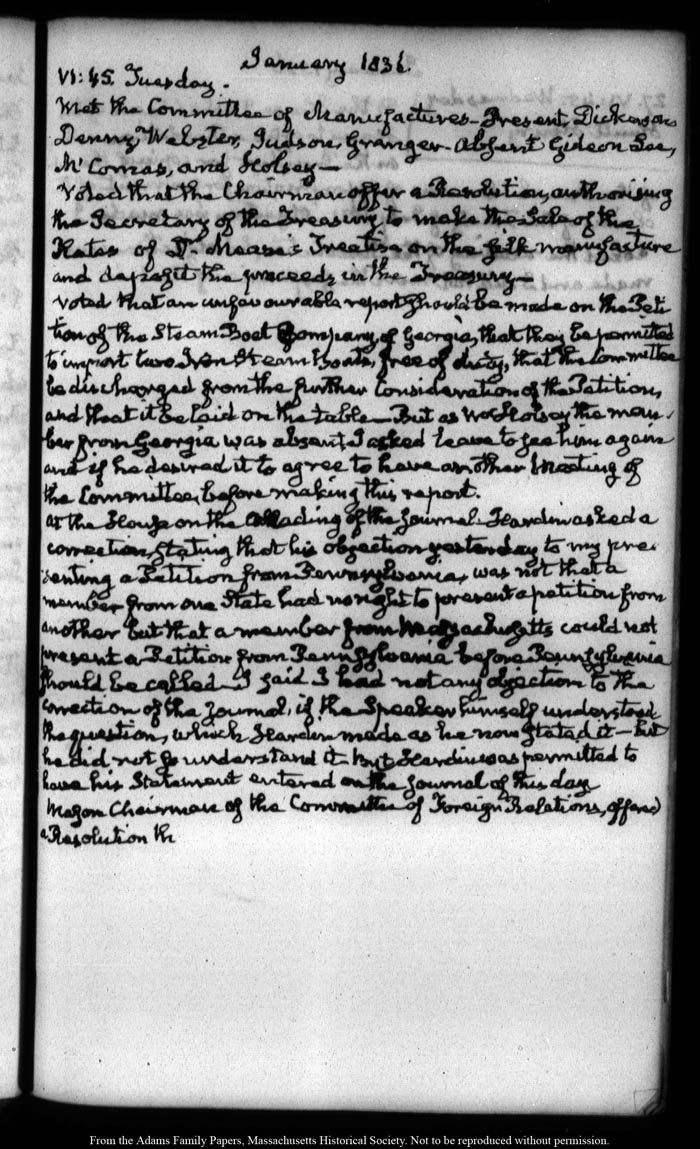 January 1836.
VI:45. Tuesday.
Met the Committee of Manufactures – Present, Dickerson
Denny, Webster, Judson, Granger – Absent Gideon Lee,
McComas, and Holsey –
Voted that the Chairman offer a Resolution, authorising
the Secretary of the Treasury to make the Sale of the
Plates of Dr. Mease's Treatise on the silk manufacture
and deposit the proceeds in the Treasury –
Voted that an unfavourable report should be made on the Peti-
tion of the Steam Boat Company of Georgia, that they be permitted
to import two Iron Steam Boats, free of duty, that the Committee
be discharged from the further Consideration of the Petition,
and that it be laid on the table – But as Holsey the mem-
ber from Georgia was absent, I asked leave to see him again
and if he desired it to agree to have another Meeting of
the Committee, before making this report.
At the House on the reading of the Journal. Hardin asked a
correction, stating that his objection yesterday to my pre-
senting a Petition from Pennsylvania, was not that a
member from one State had no right to present a petition from
another but that a member from Massachusetts could not
present a Petition from Pennsylvania before Pennsylvania
should be called – I said I had not any objection to the
correction of the Journal, if the Speaker himself understood
the question, which Hardin made as he now stated it – But
he did not so understand it. But Hardin was permitted to
have his Statement entered on the Journal of this day
Mason Chairman of the Committee of Foreign Relations, offered
a Resolution th
From the Adams Family Papers, Massachusetts Historical Society. Not to be reproduced without permission.